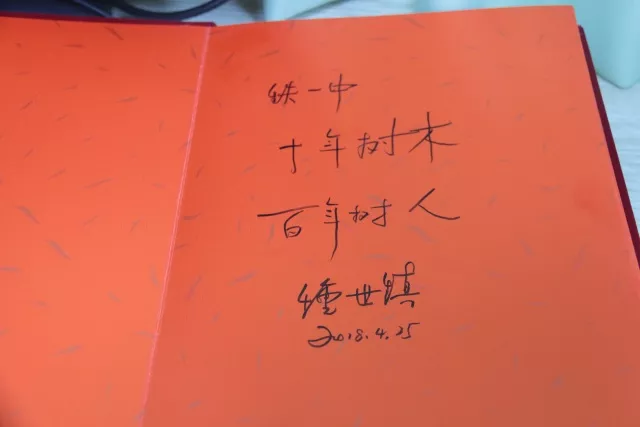 铁一中
十年树木
百年树人
锺世镇
2018.4.25